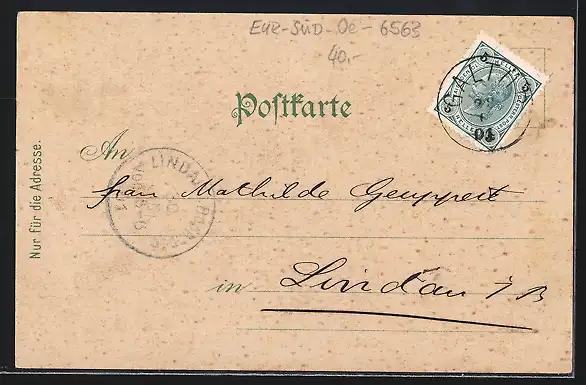 EUR-SÜD-Oe-6563
40,-
Postkarte
An
Frau Mathilde Geuppert
in Lindau i/B
Nur für die Adresse.
LINDAU
GALL
5 HELLER 5
01